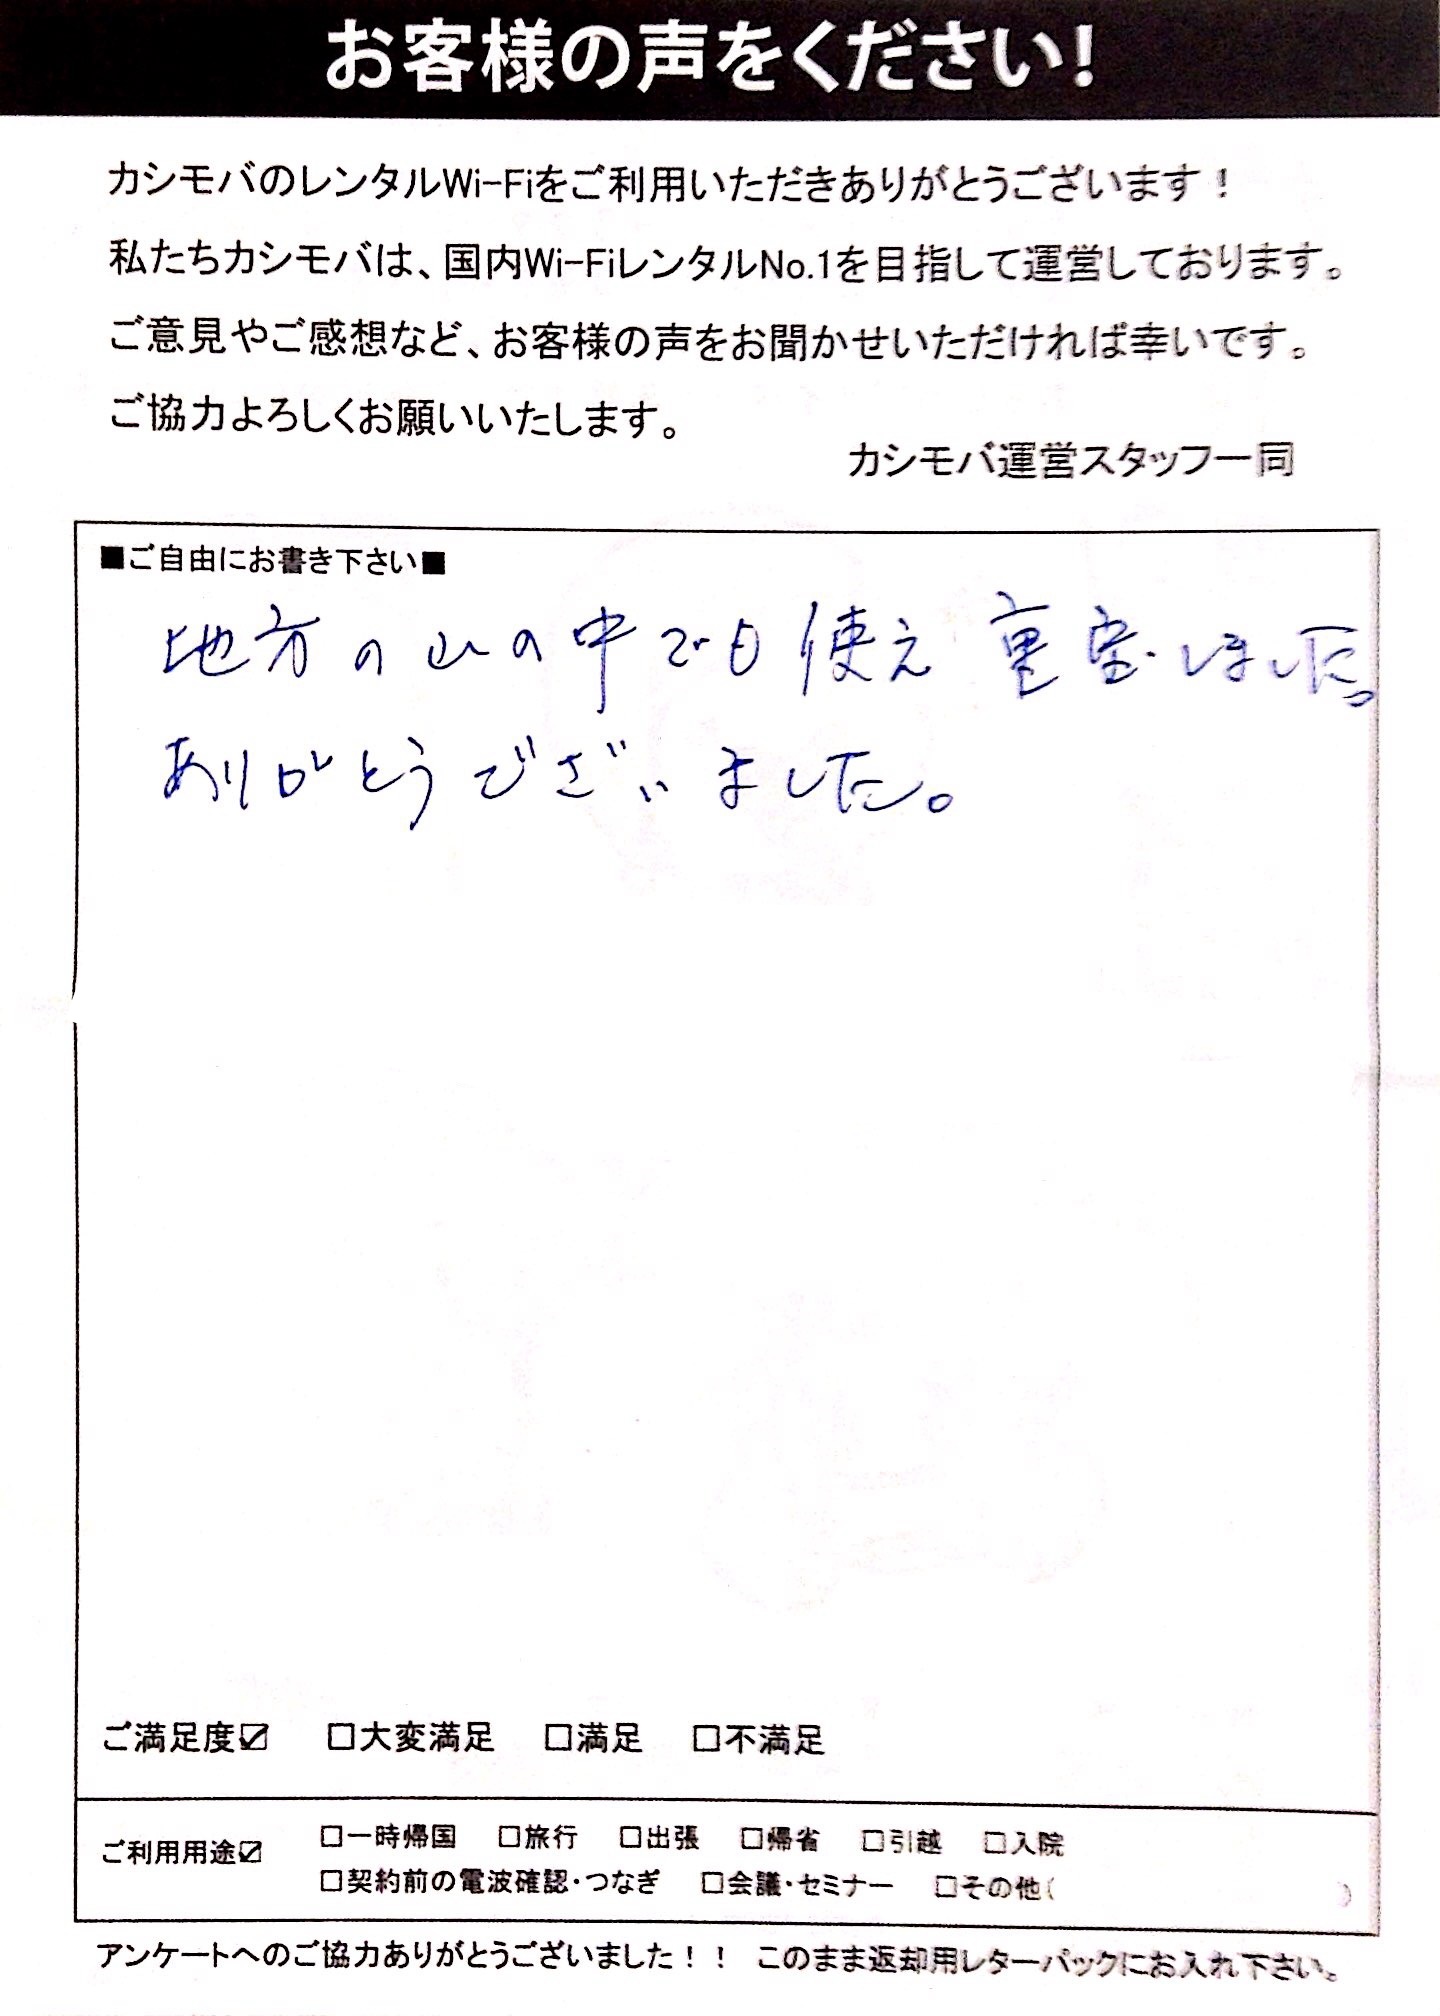 お客様の声をください!
カシモバのレンタルWi-Fiをご利用いただきありがとうございます！
私たちカシモバは、国内Wi-FiレンタルNo.1を目指して運営しております。
ご意見やご感想など、お客様の声をお聞かせいただければ幸いです。
ご協力よろしくお願いいたします。
カシモバ運営スタッフ一同
■ご自由にお書き下さい■
地方の山の中でも使え重宝しました。
ありがとうございました。
ご満足度☑ □大変満足 □満足 □不満足
ご利用用途☑ □一時帰国 □旅行 □出張 □帰省 □引越 □入院
□契約前の電波確認・つなぎ □会議・セミナー □その他( )
アンケートへのご協力ありがとうございました！！ このまま返却用レターパックにお入れ下さい。